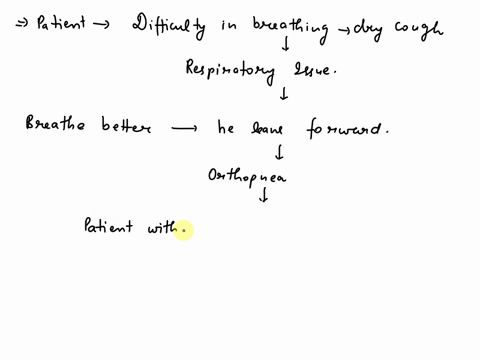 => Patient → Difficulty in breathing → dry cough
↓
Respiratory Issue.
↓
Breathe better → he leans forward.
↓
Orthopnea
↓
Patient with.